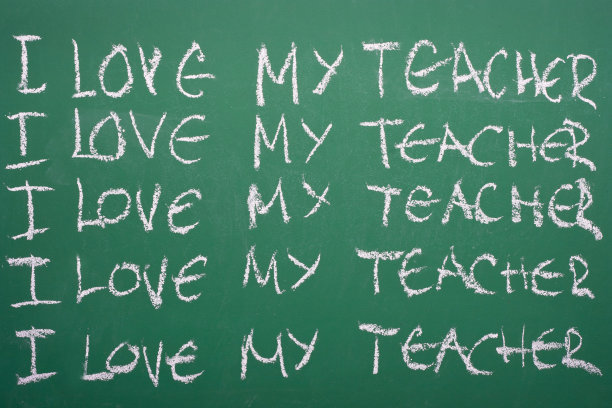 I LOVE MY TEACHER
I LOVE MY TEACHER
I LOVE MY TEACHER
I LOVE MY TEACHER
I LOVE MY TEACHER